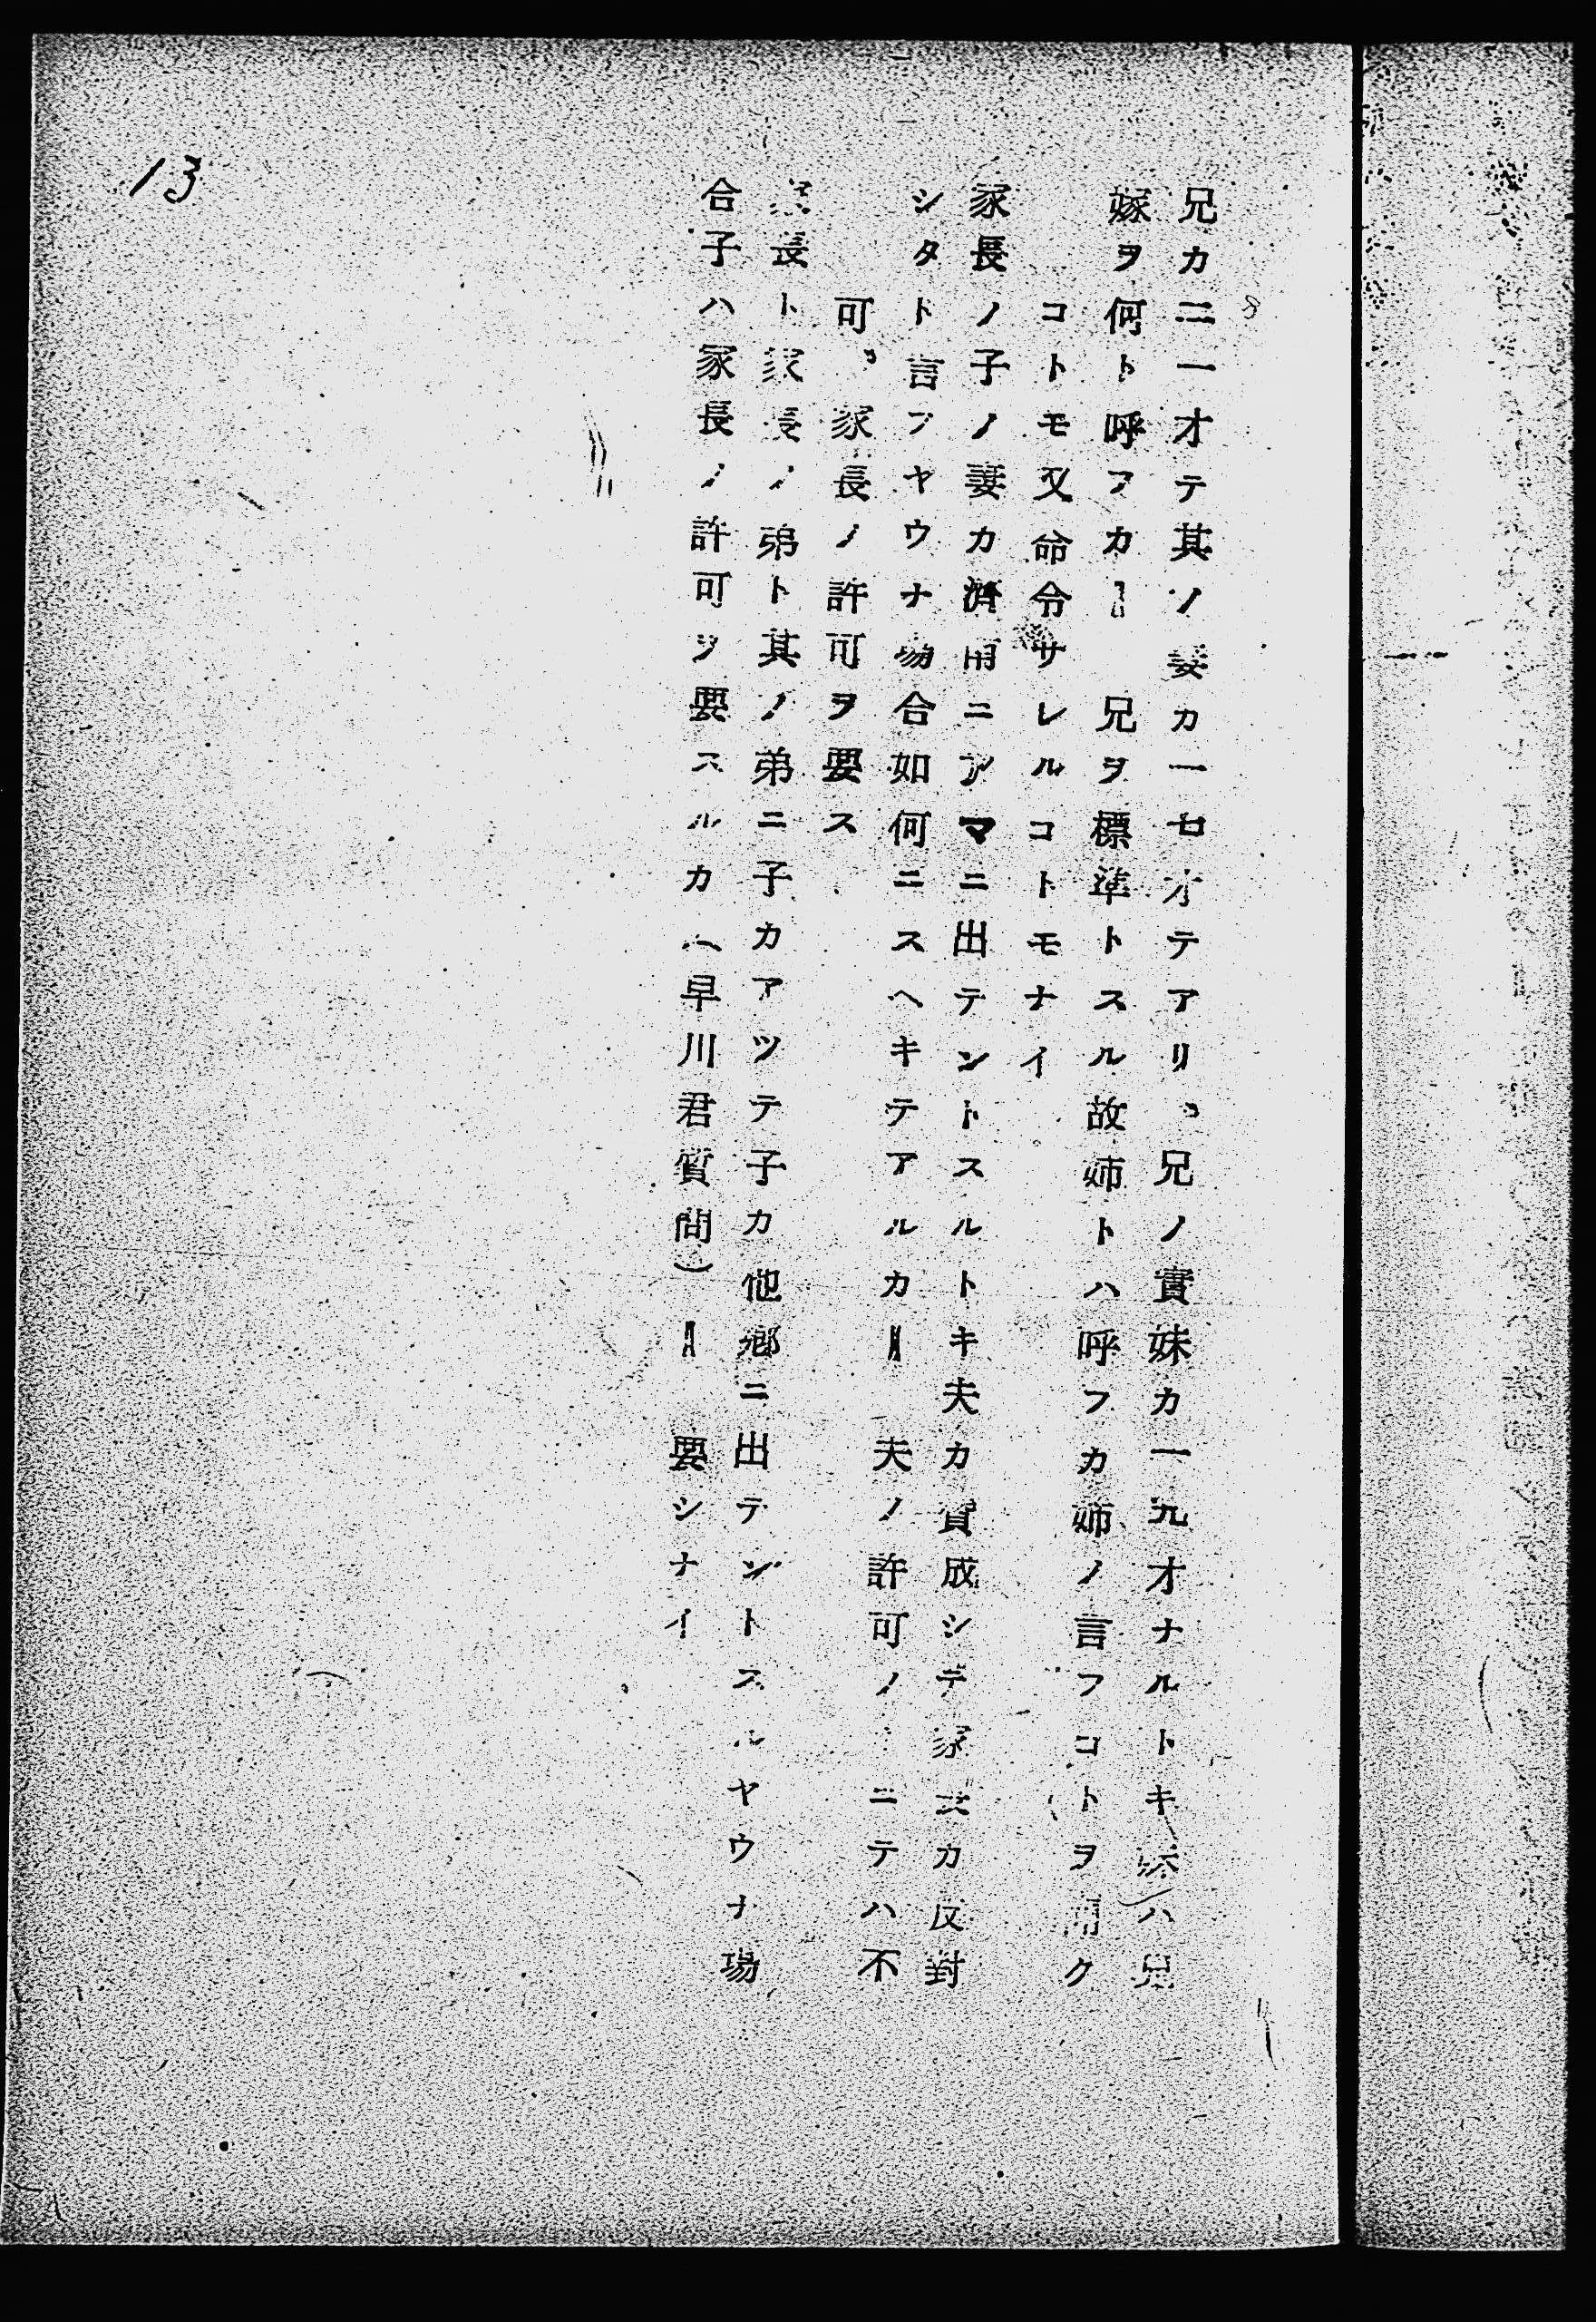 兄カ二一才テ其ノ妻カ一七才テアリ、兄ノ實妹カ一九才ナルトキ妹ハ兄
嫁ヲ何ト呼フカ‖ 兄ヲ標準トスル故姉トハ呼フカ姉ノ言フコトヲ聞ク
コトモ又命令サレルコトモナイ
家長ノ子ノ妻カ濟南ニアマニ出テントスルトキ夫カ賛成シテ家長カ反對
シタト言フヤウナ場合如何ニスヘキテアルカ‖ 夫ノ許可ノミニテハ不
可、家長ノ許可ヲ要ス
家長ト家長ノ弟ト其ノ弟ニ子カアツテ子カ他郷ニ出テントスルヤウナ場
合子ハ家長ノ許可ヲ要スルカ（早川君質問）‖ 要シナイ
13